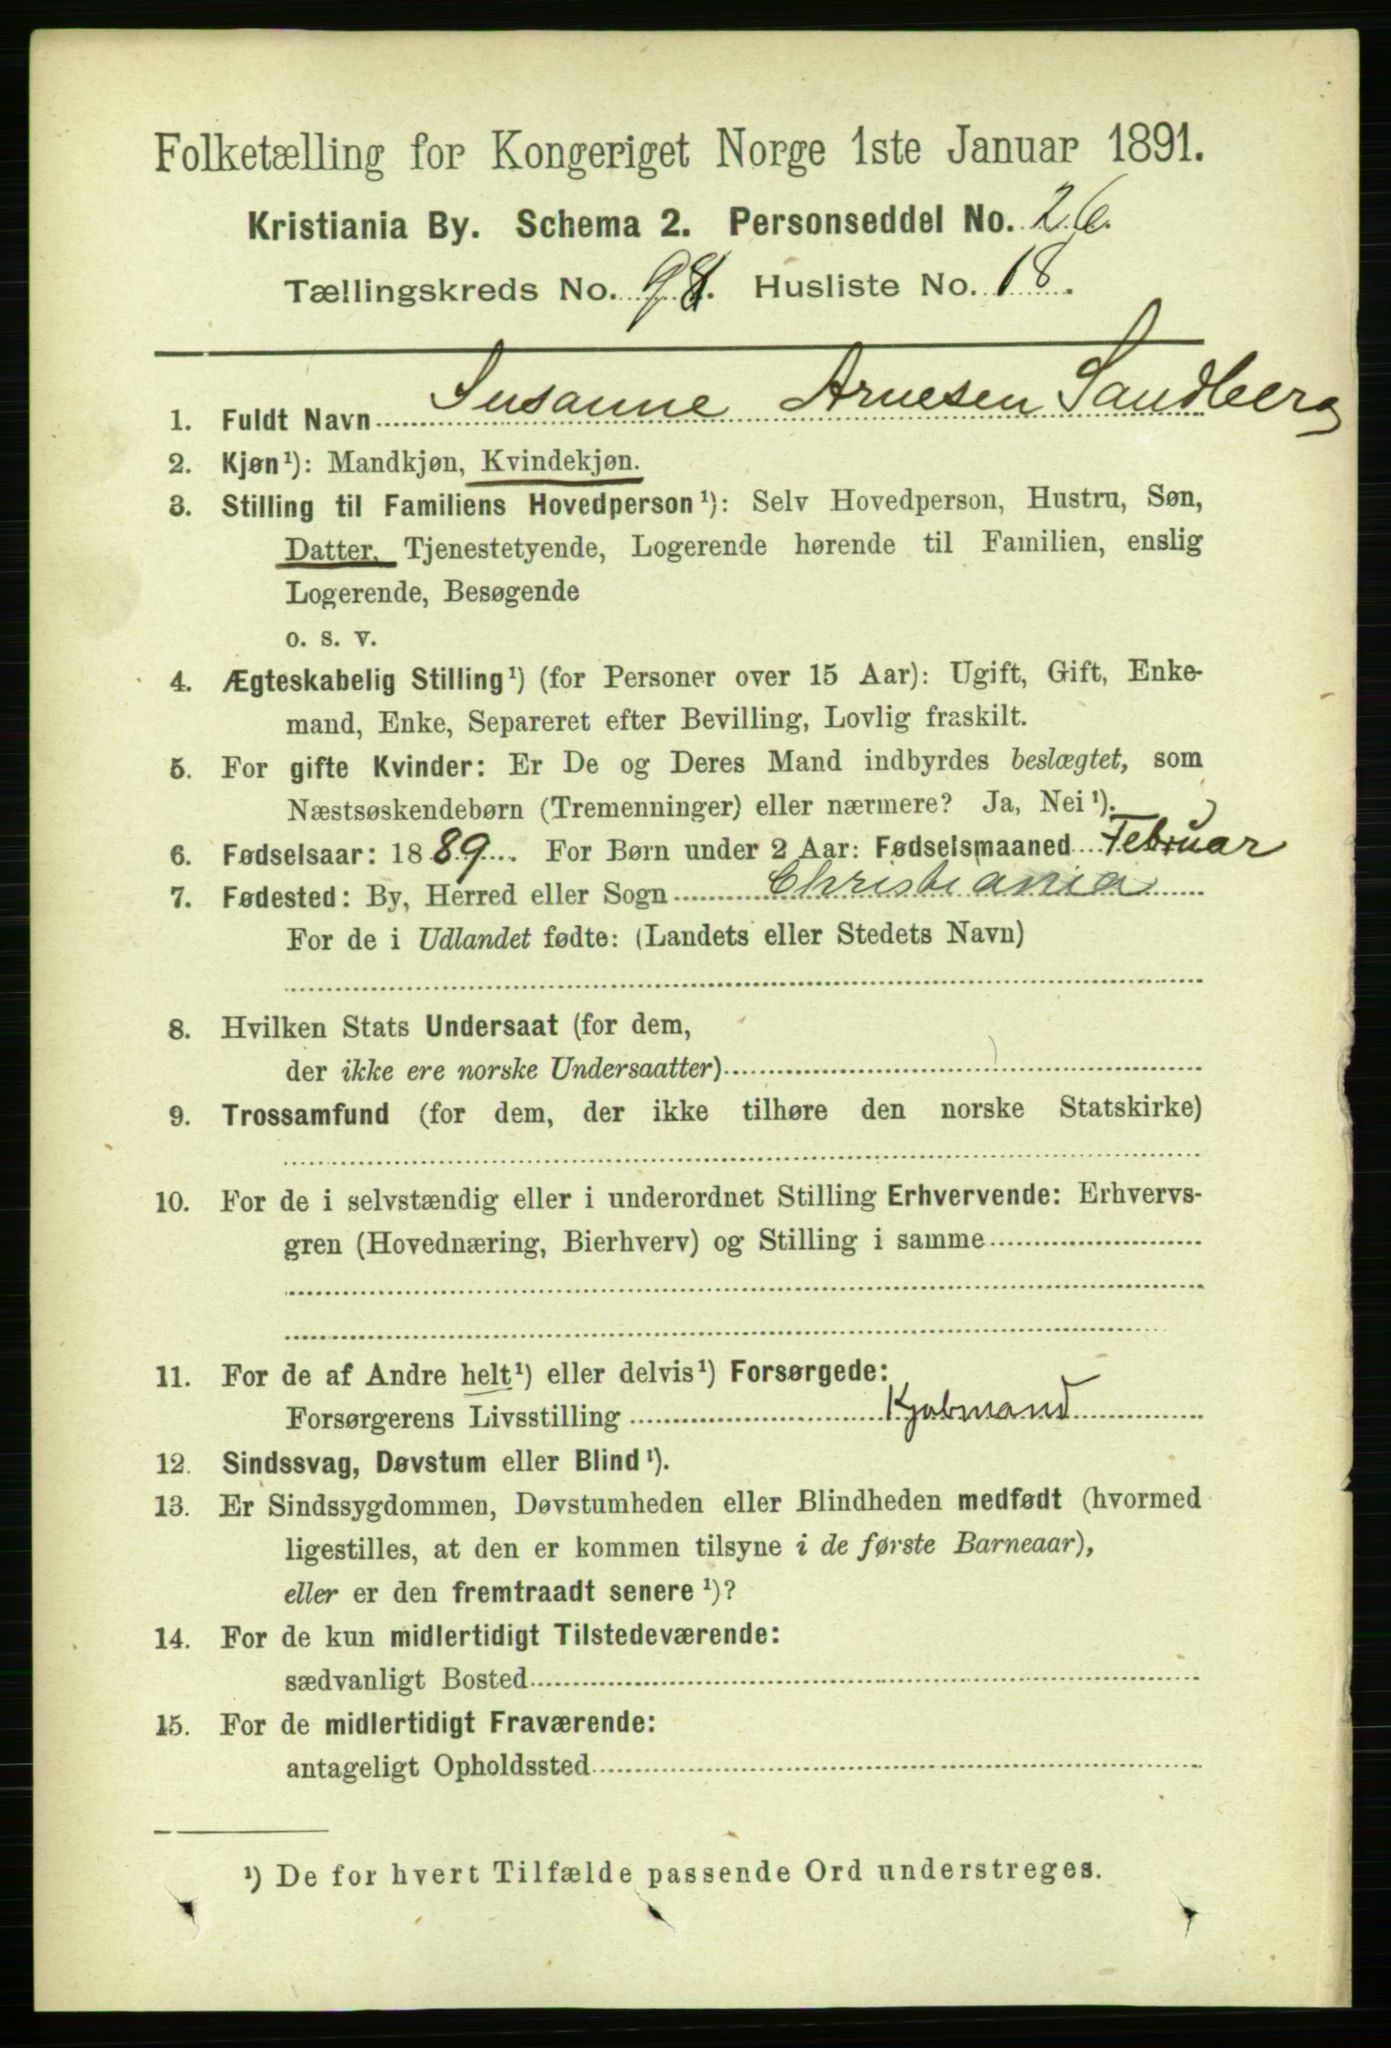 Folketælling for Kongeriget Norge 1ste Januar 1891.
Kristiania By. Schema 2. Personseddel No. 26.
Tællingskreds No. 98. Husliste No. 18.
1. Fuldt Navn Susanne Arnesen Sandberg
2. Kjøn¹): Mandkjøn, Kvindekjøn.
3. Stilling til Familiens Hovedperson¹): Selv Hovedperson, Hustru, Søn,
Datter, Tjenestetyende, Logerende hørende til Familien, enslig
Logerende, Besøgende
o. s. v.
4. Ægteskabelig Stilling¹) (for Personer over 15 Aar): Ugift, Gift, Enke-
mand, Enke, Separeret efter Bevilling, Lovlig fraskilt.
5. For gifte Kvinder: Er De og Deres Mand indbyrdes beslægtet, som
Næstsøskendebørn (Tremenninger) eller nærmere? Ja, Nei¹).
6. Fødselsaar: 1889. For Børn under 2 Aar: Fødselsmaaned Februar
7. Fødested: By, Herred eller Sogn Christiania
For de i Udlandet fødte: (Landets eller Stedets Navn)
8. Hvilken Stats Undersaat (for dem,
der ikke ere norske Undersaatter)
9. Trossamfund (for dem, der ikke tilhøre den norske Statskirke)
10. For de i selvstændig eller i underordnet Stilling Erhvervende: Erhvervs-
gren (Hovednæring, Bierhverv) og Stilling i samme
11. For de af Andre helt¹) eller delvis¹) Forsørgede:
Forsørgerens Livsstilling Kjøbmand
12. Sindssvag, Døvstum eller Blind¹).
13. Er Sindssygdommen, Døvstumheden eller Blindheden medfødt (hvormed
ligestilles, at den er kommen tilsyne i de første Barneaar),
eller er den fremtraadt senere¹)?
14. For de kun midlertidigt Tilstedeværende:
sædvanligt Bosted
15. For de midlertidigt Fraværende:
antageligt Opholdssted
¹) De for hvert Tilfælde passende Ord understreges.